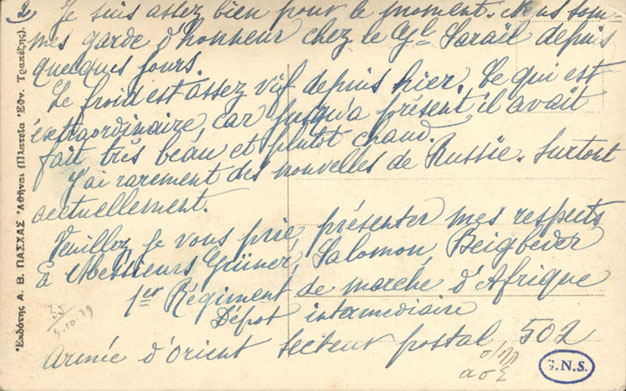 2) Je suis assez bien pour le moment. Nous som-
mes garde d'honneur chez le Gl Sarail depuis
quelques jours.
Le froid est assez vif depuis hier. Ce qui est
extraordinaire, car jusqu'à présent il avait
fait très beau et plutôt chaud.
J'ai rarement des nouvelles de Russie. Surtout
actuellement.
Veuillez je vous prie présenter mes respects
à Messieurs Grüner, Salomon, Beigbeder
1er Regiment de marche d'Afrique
Dépot intermédiaire
Armée d'orient secteur postal 502
Ἐκδότης Α. Β. ΠΑΣΧΑΣ Ἀθῆναι (Πλατεῖα Ἐθν. Τραπέζης).
G.N.S.